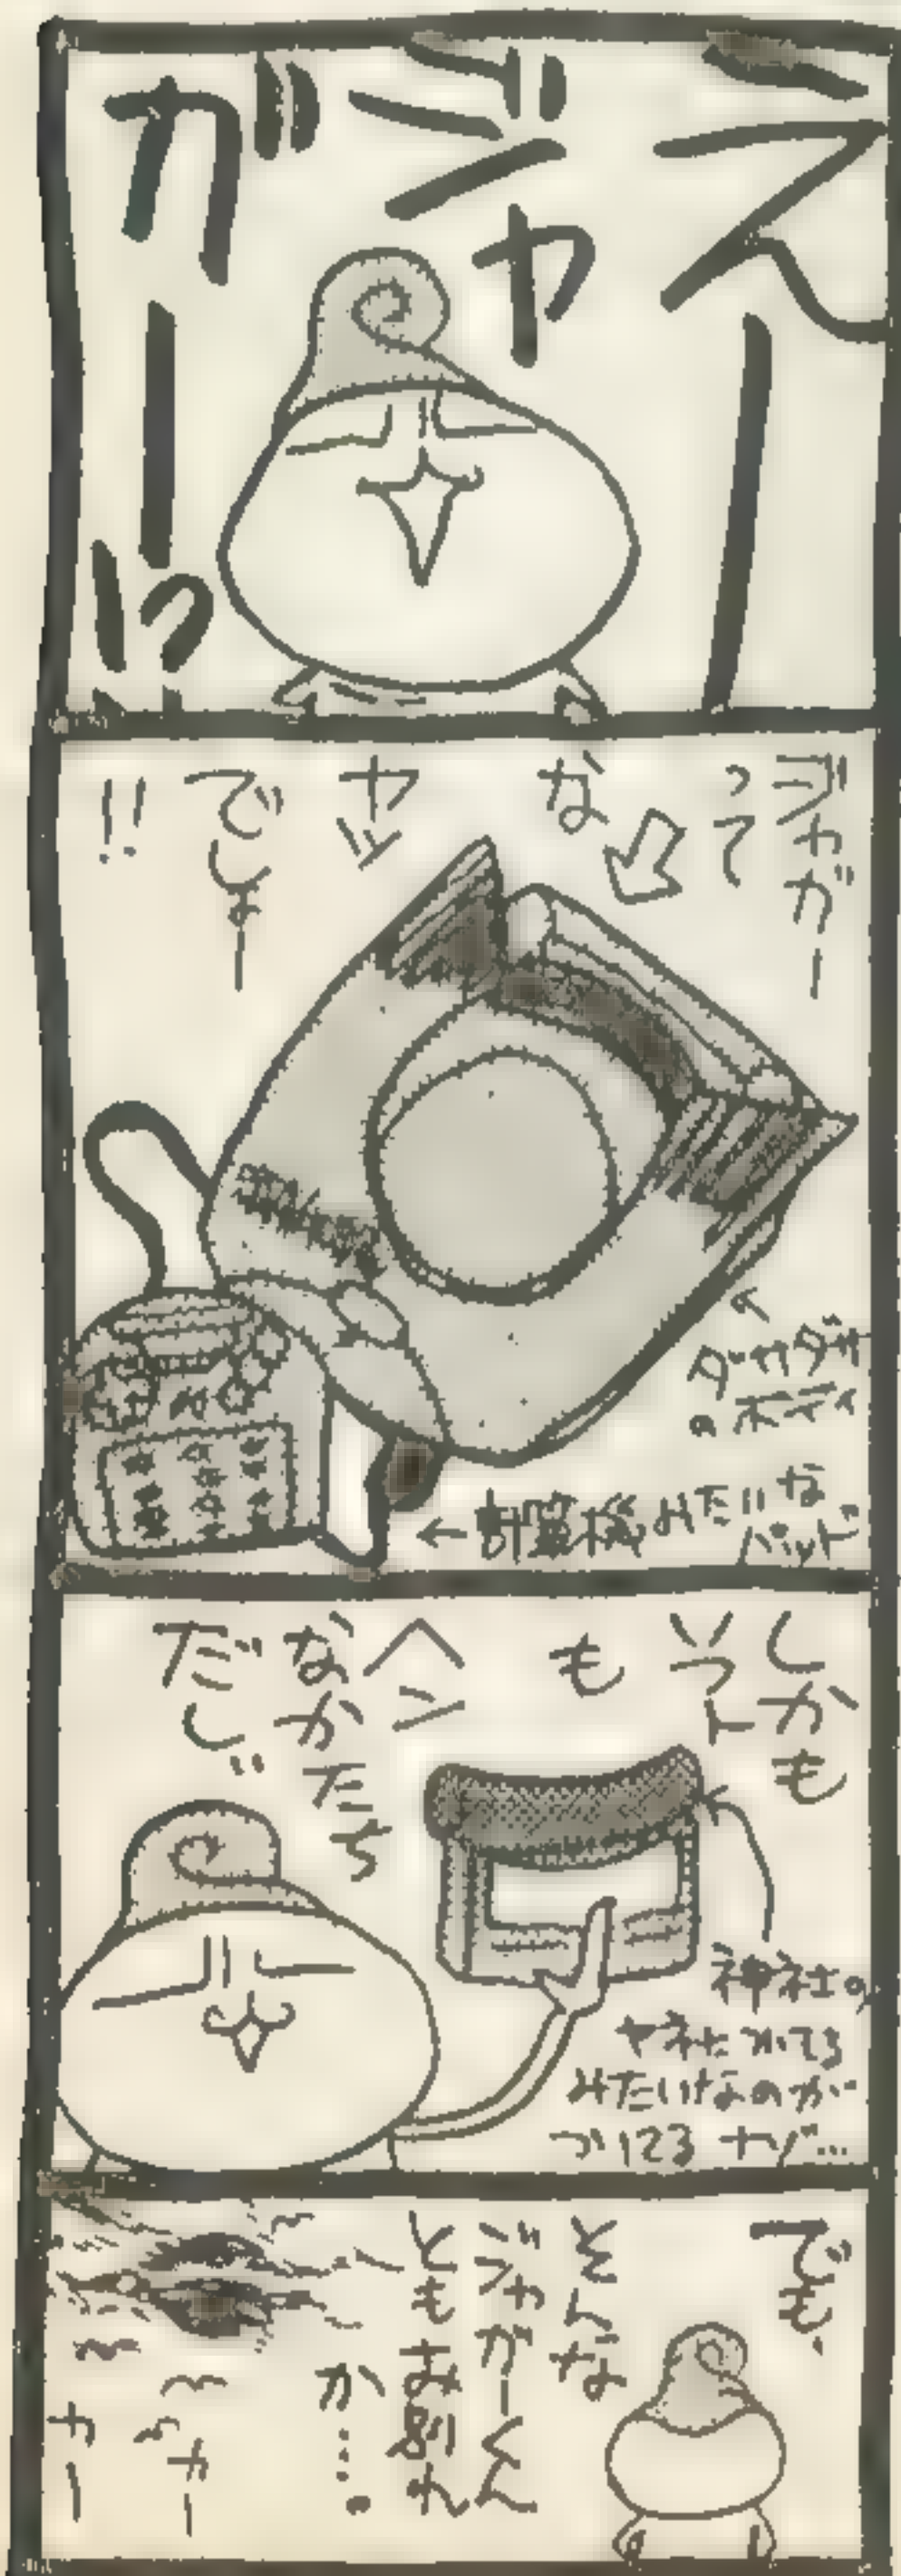 えー
ジャ
がー!?
ジャガー
って
な
ヤツ
でしょー
!!
ダサダサ
のボディ
←計算機みたいな
パッド
しかも
ソフト
も
ヘン
なかたち
だし゛
神社の
ヤネた
みたいなのが
ついてるナゾ…
でも、
そんな
ジャガーくん
ともお別れ
か…。
カー
カー